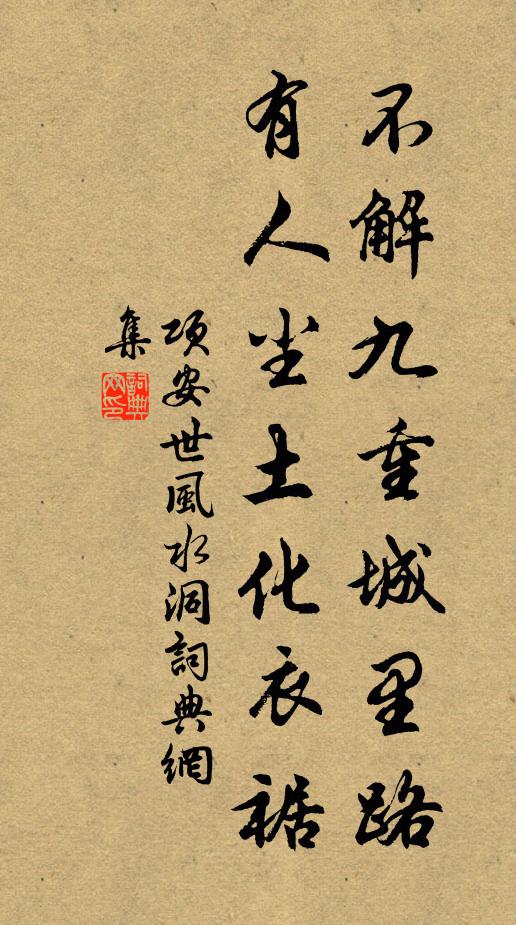 不解九重城里路
有人尘土化衣裾
項安世風水洞詞典網
集
詞典網印